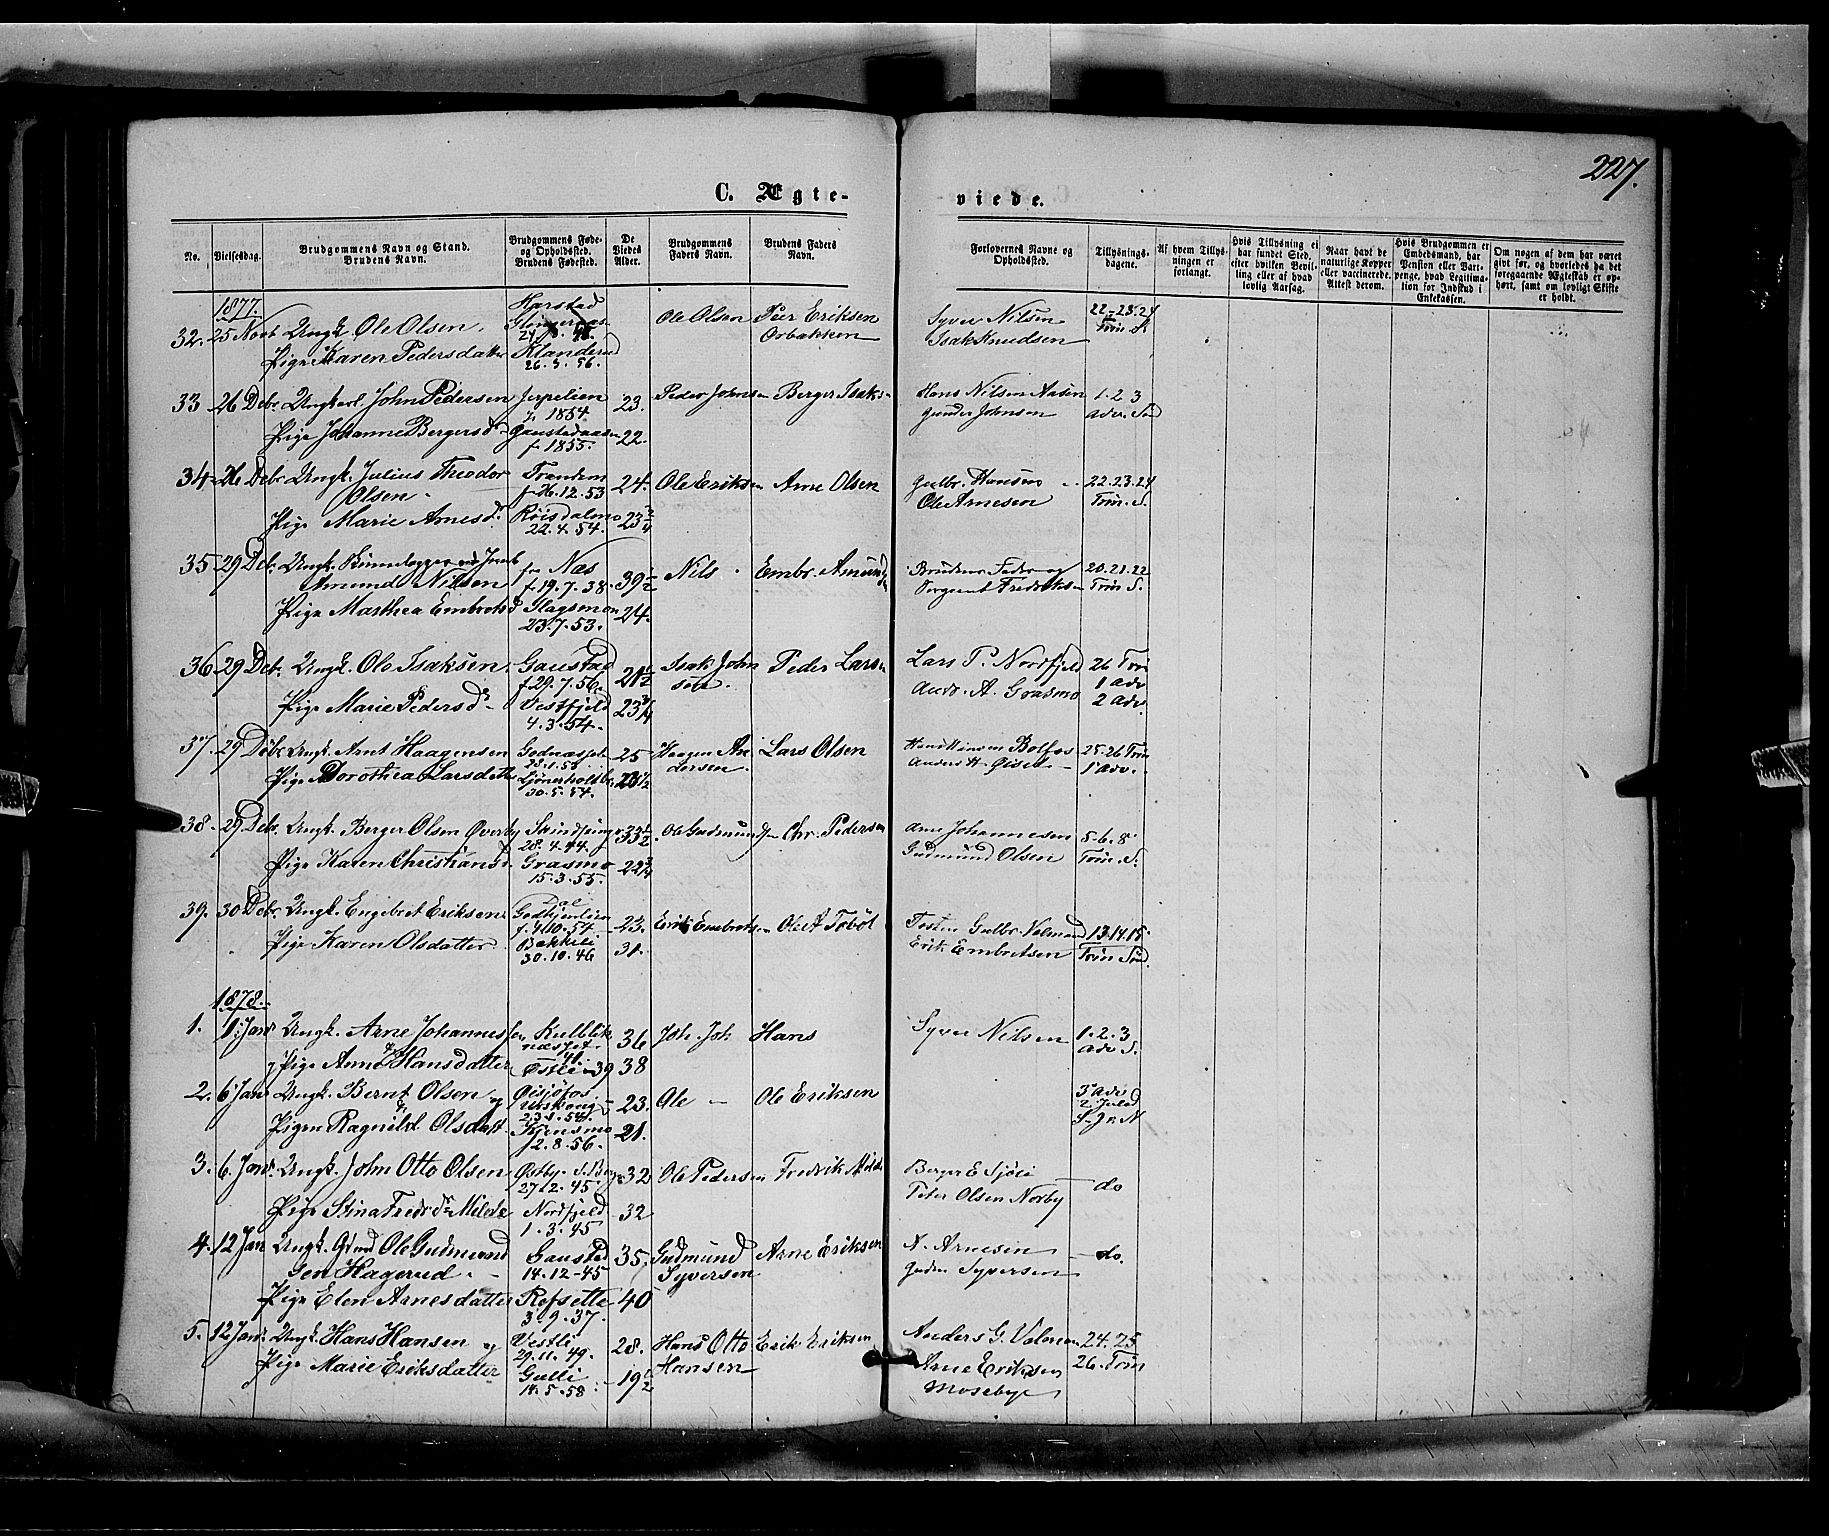 227.
C. Ægte-
viede.
No.
Vielsesdag.
Brudgommens Navn og Stand.
Brudens Navn.
Brudgommens Føde-
og Opholdssted.
Brudens Fødested.
De
Viedes
Alder.
Brudgommens
Faders Navn.
Brudens Faders
Navn.
Forlovernes Navne og
Opholdssted.
Tillysnings-
dagene.
Af hvem Tillys-
ningen er
forlangt.
Hvis Tillysning ei
har fundet Sted,
efter hvilken Bevil-
ling eller af hvad
lovlig Aarsag.
Naar havt de
naturlige Kopper
eller vaccinerede.
Attest derom.
Hvis Brudgommen er
Embedsmand, har
Pension eller Vart-
penge, hvad Legitima-
tion for Indskud i
Enkekassen.
Om nogen af dem har været
givt før, og hvorledes da det
foregaaende Ægteskab er op-
hørt, samt om lovligt Skifte
er holdt.
1877.
32. 25 Novb Ungk. Ole Olsen. Harstad Ole Olsen Peer Eriksen Syver Nilsen 22-23.24
Orbakken Isak Knudsen Trin. S.
Pige Karen Pedersdatter
26.3.56.
33 26 Debr. Ungkarl John Pedersen 23. Peder Johnsen Berger Isaks- Hans Nilsen Aasen 1.2 3
f. 1854. Gunder Johnsen adv. Sød
Pige Johanne Bergersd. Gaustadaasen 22.
f. 1855.
34. 26 Debr. Ungk. Julius Theodor 24. Ole Eriksen Arne Olsen Gulbr. Hansen 22.23.24
Olsen f. 26.12.53 Ole Arnesen Trin. S.
Pige Marie Arnesd. 23 3/4
22.4.54.
35 29 Deb. Ungk. fra Næs Nils Embr. Amunds Brudens Fader og 20.21.22
Amund Nilsen f. 19.7.38. 39 1/2 Sergeant Fredriksen Trin S.
Pige Marthea Embretsd Slagsmoen 24.
23.7.53.
36 29 Deb. Ungk. Ole Isaksen. Gaustad 21 1/2 Isak John Peder Larsen Lars P. Nordfjeld 26 Trin
f. 29.7.56. sen. Andr. A. Grasmo 1 adv
Pige Marie Pedersd. Vestfjeld 23 3/4 2 adv.
4.3.54.
37. 29 Debr. Ungk. Arnt Haagensen 25 Haagen An Lars Olsen 25.26 Trin
dersen. 1 adv.
Pige Dorothea Larsdatter 23 1/2
30.5.54.
38. 29 Deb. Ungk. Berger Olsen Øverby 33 1/2 Ole Gudmunds- Chr. Pedersen Arne Johannesen 5-6-8
28.4.44. Gudmund Olsen Trin. S.
Pige Karen Christiansd. Grasmo 22 3/4
15.3.55.
39. 30 Deb. Ungk. Engebret Eriksen 23. Erik Embrets- Ole A Tobøl Gulbr. Velmund 13.14.15
f. 4.10.54. Erik Embretsen Trin Sød
Pige Karen Olsdatter. Bakkeli 31.
30.10.46
1878.
1. 1. Jan Ungk. Arne Johannessen 36 Joh. Joh. Hans Syver Nilsen 1.2.3
adv S.
Pige Anne Hansdatter 39 38
2. 6 Jan Ungk. Bernt Olsen og 23. Ole - Ole Eriksen 3 Adv
23.1.54. 2 Juled
Pigen Ragnild Olsdatt. Kjensmo 21. S. f. N
2.8.56.
3. 6. Jan Ungk. John Otto Olsen 32 Ole Pedersen Fredrik Milde Berger E Sjøli do
27.2.45 Peter Olsen Norby
Pige Stina Fredrd. Milde Nordfjeld 32
1.3.45
4. 12 Jan Ungk. Ole Gudmund Gaustad 35. Gudmund Arne Eriksen A. Arnesen do.
sen Hagerud 14.12-45 Syversen Syversen
Pige Elen Arnesdatter Refsette 40
3.9.37.
5. 12 Jan. Ungk. Hans Hansen og Vestli 28. Hans Otto Erik Eriksen Anders G. Velmun 24.25
29.11.49. Hansen 26. Trin
Pige Marie Eriksdatter Gulli 19 1/2 Arne Eriksen
14.5.58. Mosebye